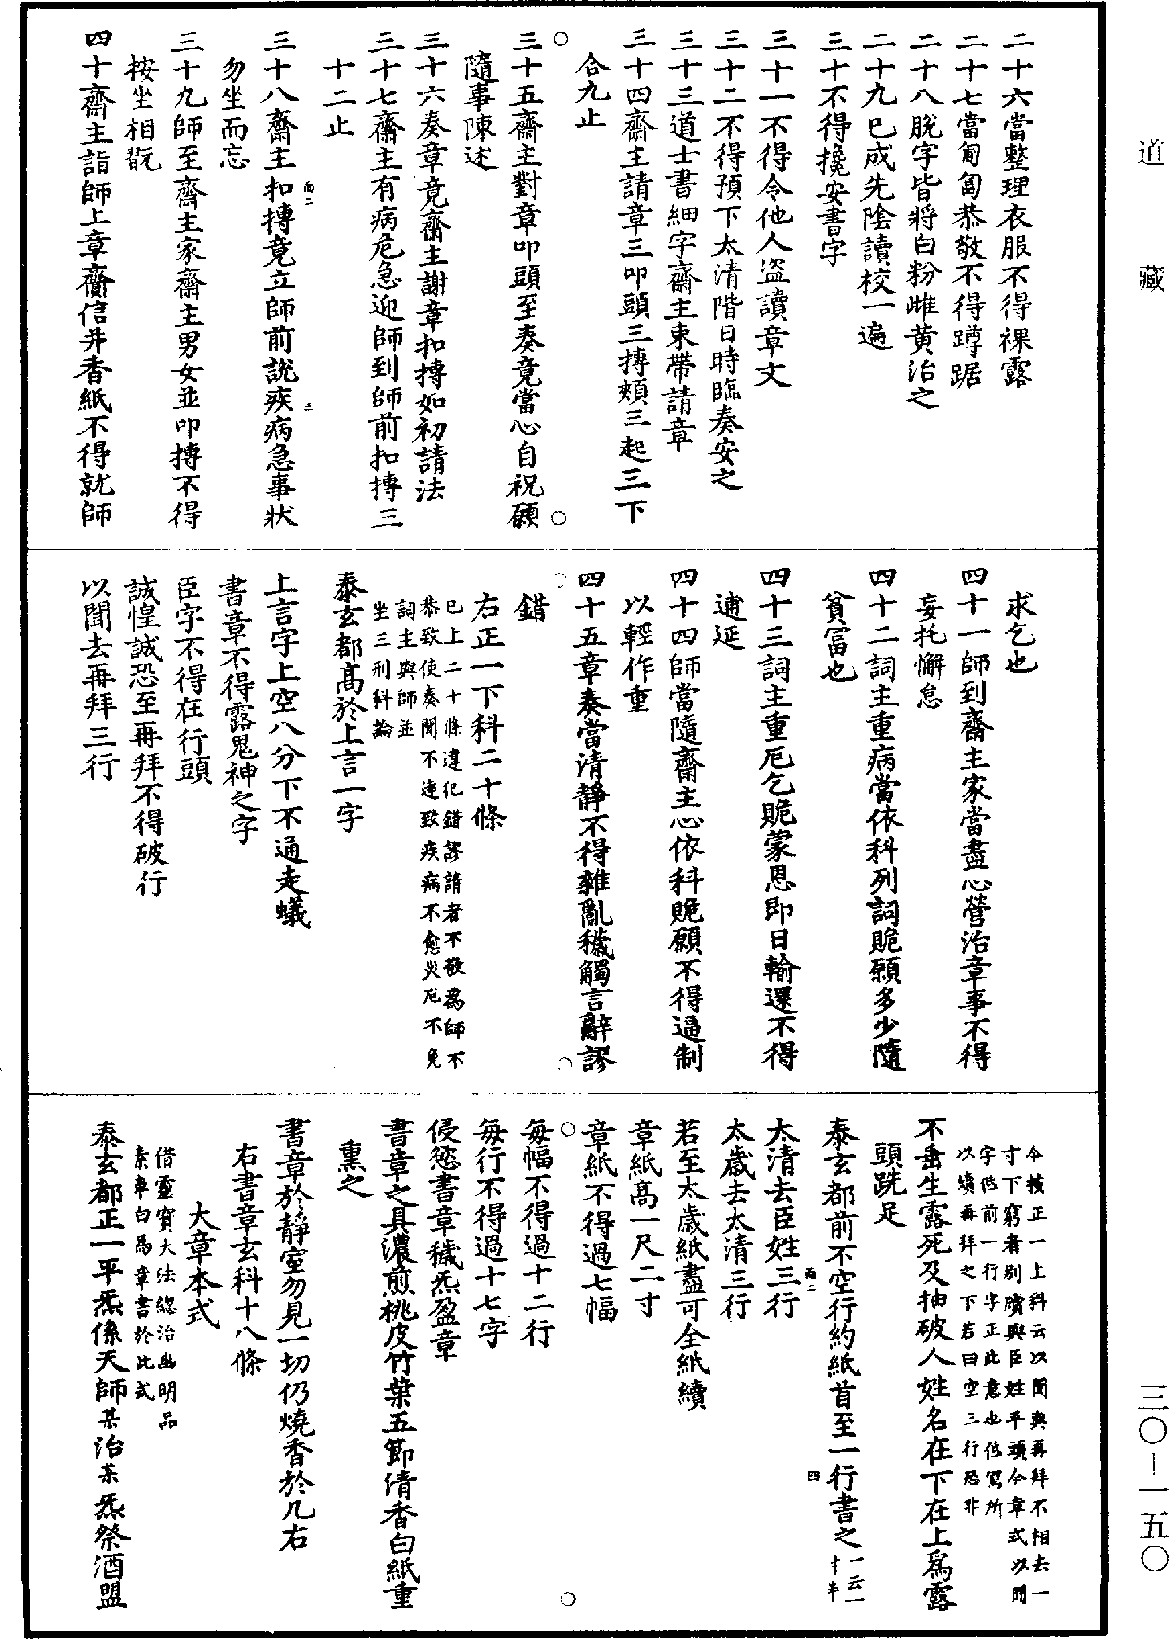 道藏
三〇—一五〇
二十六當整理衣服不得裸露
二十七當匍匐恭敬不得蹲踞
二十八脫字皆將白粉雌黃治之
二十九已成先陰讀校一遍
三十不得攙安書字
三十一不得令他人盜讀章文
三十二不得預下太清階日時臨奏安之
三十三道士書細字齋主束帶請章
三十四齋主請章三叩頭三搏頰三起三下
合九止
三十五齋主對章叩頭至奏竟當心自祝願
隨事陳述
三十六奏章竟齋主謝章扣搏如初請法
三十七齋主有病危急迎師到師前扣搏三
十二止
三十八齋主扣搏竟立師前說疾病急事狀
勿坐而忘
三十九師至齋主家齋主男女並叩搏不得
按坐相翫
四十齋主詣師上章齎信并香紙不得就師
求乞也
四十一師到齋主家當盡心營治章事不得
妄托懈怠
四十二詞主重病當依科列詞賧願多少隨
貧富也
四十三詞主重厄乞賧蒙恩即日輸還不得
逋延
四十四師當隨齋主心依科賧願不得過制
以輕作重
四十五章奏當清靜不得雜亂穢觸言辭謬
錯
右正一下科二十條
已上二十條違犯錯謬請者不敬為師不
恭致使奏聞不達致疾病不愈災厄不免
詞主與師並
坐三刑科論
泰玄都高於上言一字
上言字上空八分下不通走蟻
書章不得露鬼神之字
臣字不得在行頭
誠惶誠恐至再拜不得破行
以聞去再拜三行
今按正一上科云以聞與再拜不相去一
寸下窮者別牘與臣姓平頭今章式以聞
字低前一行字正此意也低寫所
以續再拜之下若曰空三行恐非
不書生露死及抽破人姓名在下在上為露
頭跣足
泰玄都前不空行約紙首至一行書之一云一
寸半
太清去臣姓三行
太歲去太清三行
若至太歲紙盡可全紙續
章紙高一尺二寸
章紙不得過七幅
每幅不得過十二行
每行不得過十七字
侵慾書章穢炁盈章
書章之具濃煎桃皮竹葉五節清香白紙重
熏之
書章於靜室勿見一切仍燒香於几右
右書章玄科十八條
大章本式
借靈寶大法總治幽明品
素車白馬章書於此式
泰玄都正一平炁係天師某治某炁祭酒盟